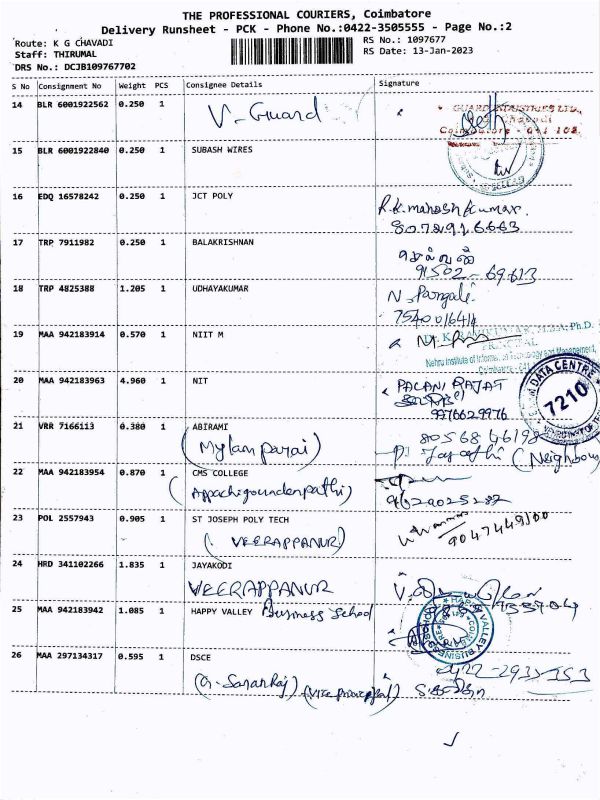 THE PROFESSIONAL COURIERS, Coimbatore
Delivery Runsheet - PCK - Phone No.:0422-3505555 - Page No.:2
Route: K G CHAVADI RS No.: 1097677
Staff: THIRUMAL RS Date: 13-Jan-2023
DRS No.: DCJB109767702
S No Consignment No Weight PCS Consignee Details Signature
14 BLR 6001922562 0.250 1 V-Guard
15 BLR 6001922840 0.250 1 SUBASH WIRES
16 EDQ 16578242 0.250 1 JCT POLY
R.K.maheshkumar.
8072916663
17 TRP 7911982 0.250 1 BALAKRISHNAN
91502-69613
18 TRP 4825388 1.205 1 UDHAYAKUMAR
N.
7540016414
19 MAA 942183914 0.570 1 NIIT M
PRINCIPAL
Nehru Institute of Information Technology and Management,
20 MAA 942183963 4.960 1 NIT PALANI RAJAT
9976629976
DATA CENTRE
7210
21 VRR 7166113 0.380 1 ABIRAMI 80568 46198
(Mylampatai) (Neighbour)
22 MAA 942183954 0.870 1 CMS COLLEGE
(Appachigounderpathi)
23 POL 2557943 0.905 1 ST JOSEPH POLY TECH
(VEERAPPANUR) 9047449500
24 HRD 341102266 1.835 1 JAYAKODI
VEERAPPANUR
25 MAA 942183942 1.085 1 HAPPY VALLEY Business School
HAPPY VALLEY BUSINESS SCHOOL
COIMBATORE
26 MAA 297134317 0.595 1 DSCE 0422-293
(G. Saranraj) (Vice principal)